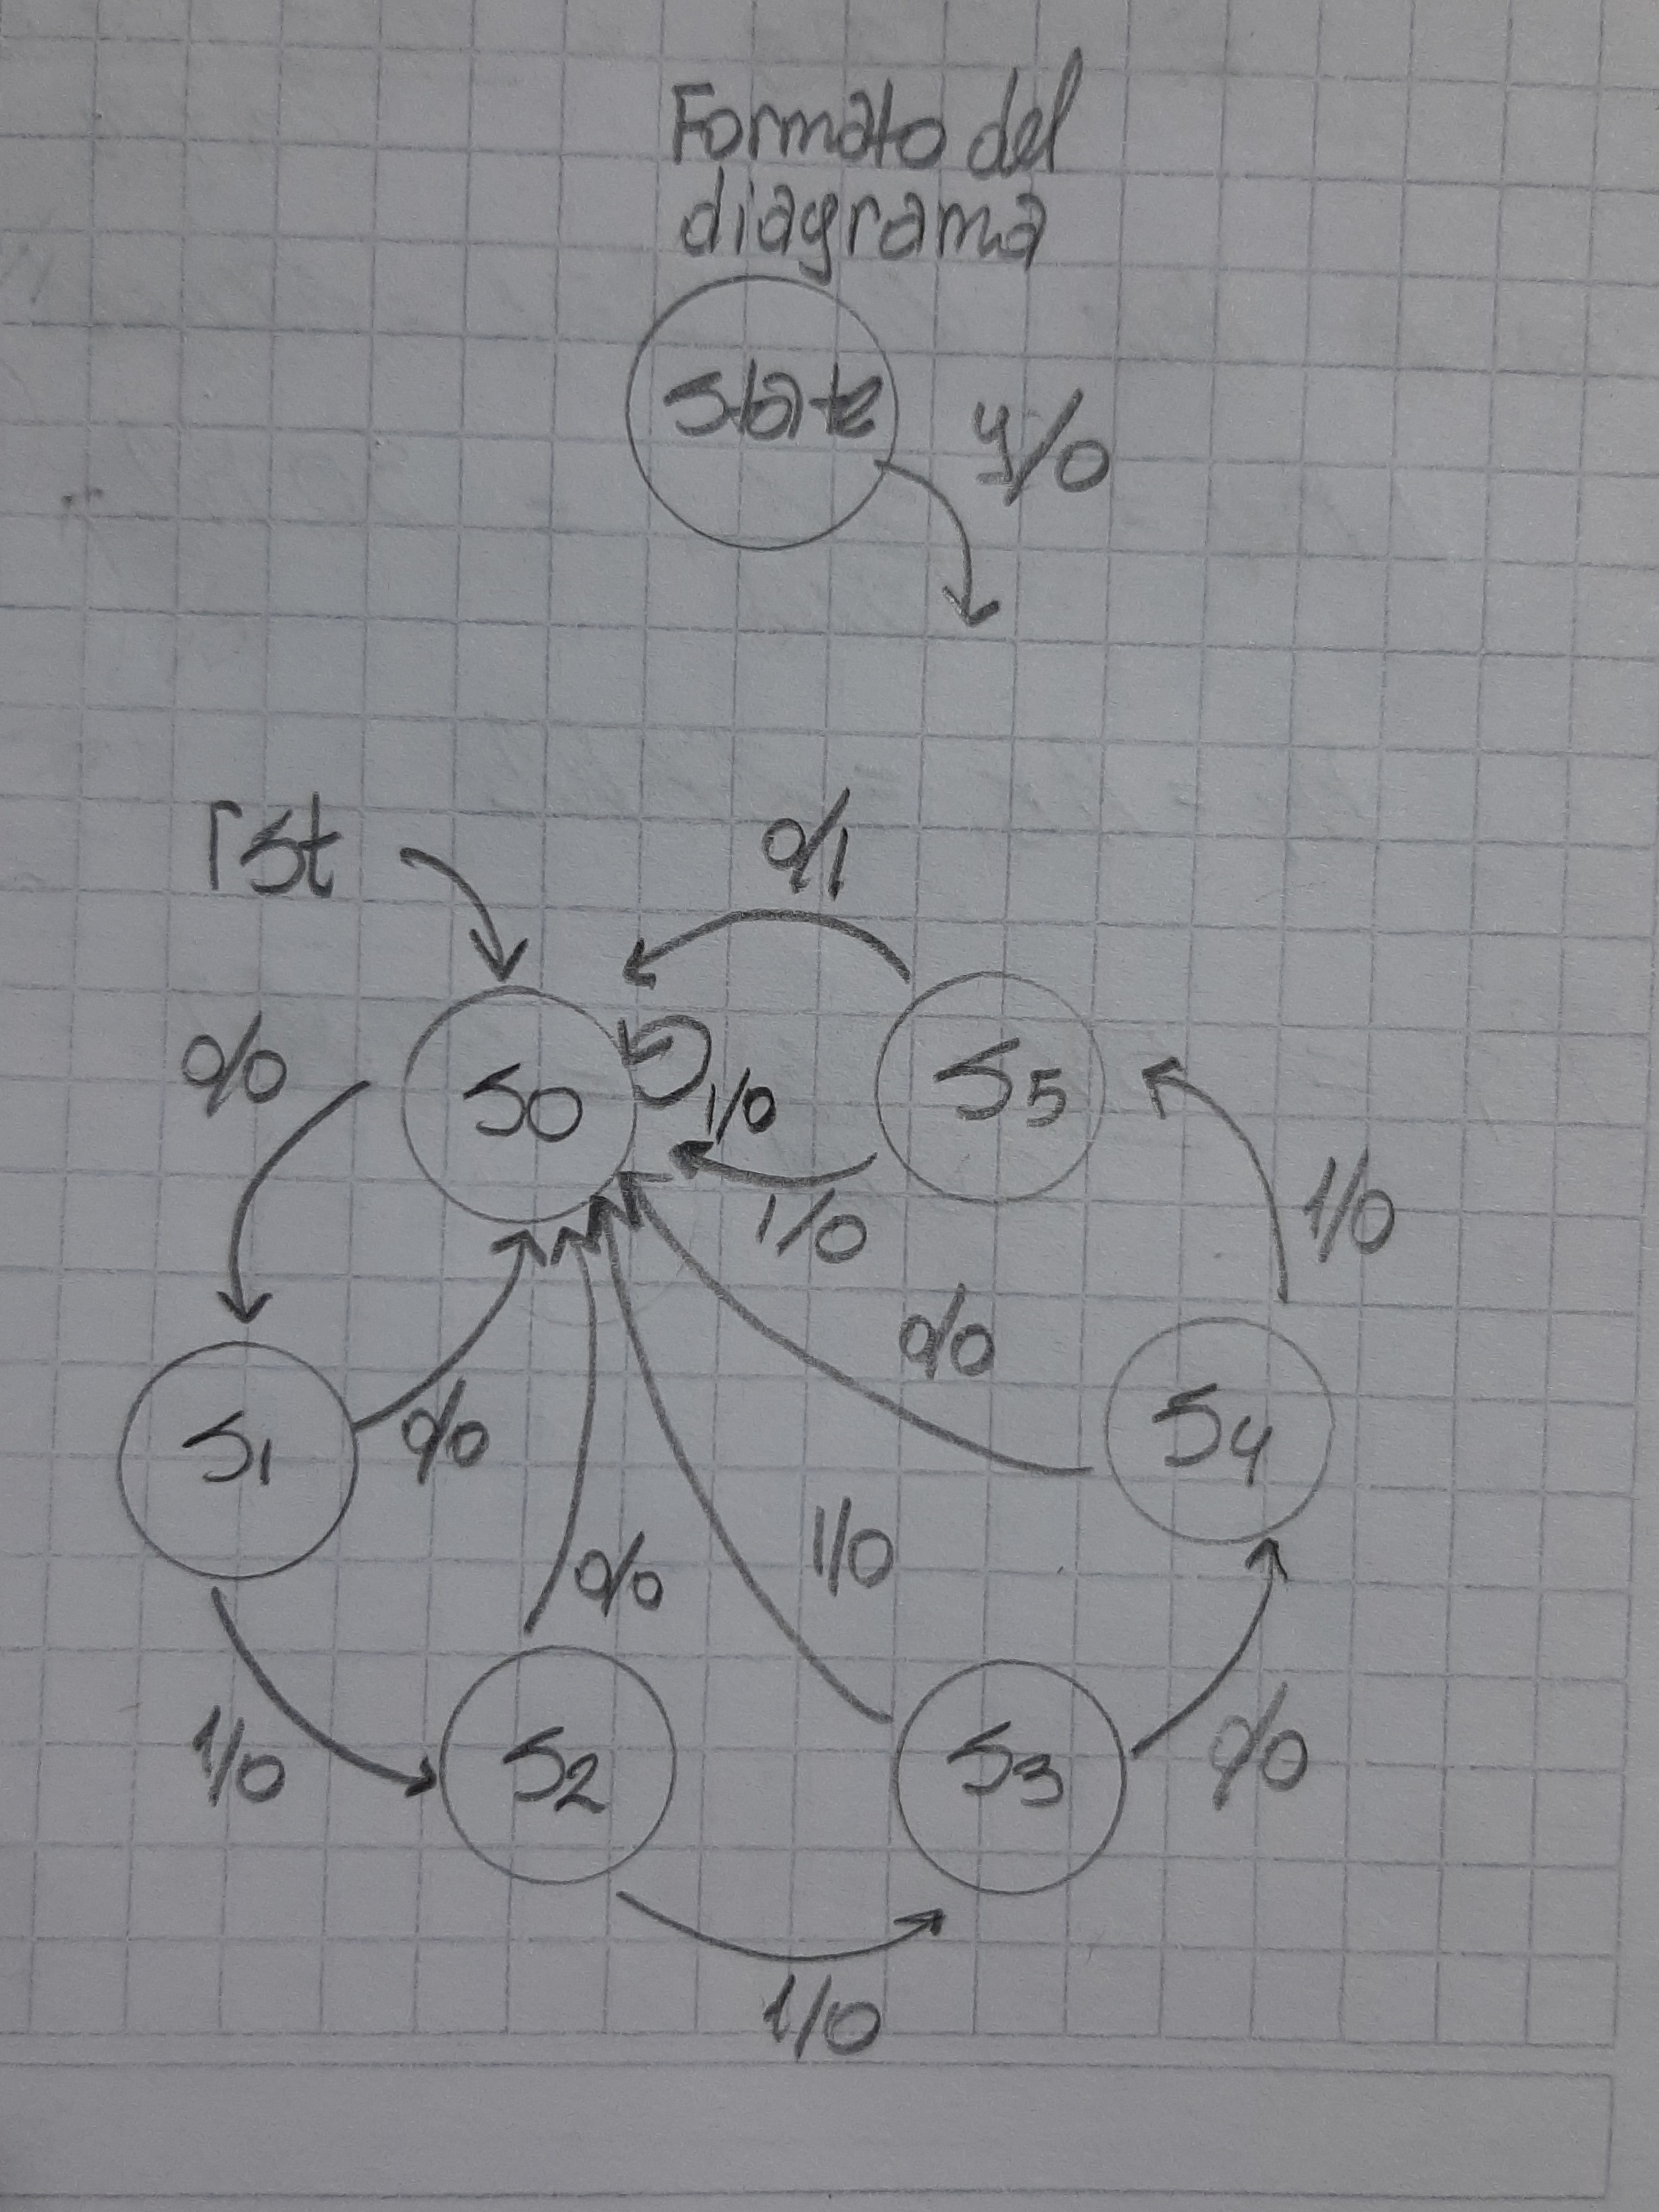 Formato del
diagrama
State
y/o
rst
0/1
0/0
S0
1/0
S5
1/0
1/0
0/0
S1
0/0
S4
1/0
0/0
1/0
S2
S3
0/0
1/0